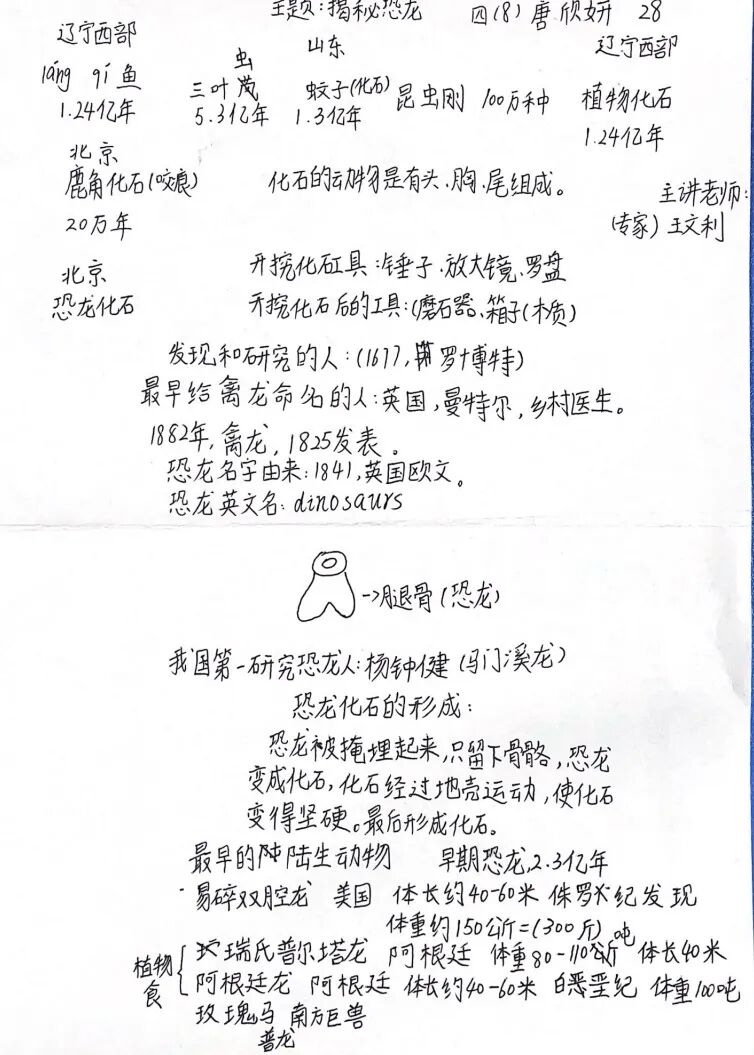 主题:揭秘恐龙 四(8) 唐欣妍 28
辽宁西部 山东 辽宁西部
láng qí 鱼 三叶虫 蚊子(化石) 昆虫刚 100万种 植物化石
1.24亿年 5.3亿年 1.3亿年 1.24亿年
北京
鹿角化石(咬痕) 化石的动物是有头、胸、尾组成。
20万年 主讲老师:
(专家)王文利
北京 开挖化石工具:锤子、放大镜、罗盘
恐龙化石 开挖化石后的工具:(磨石器、箱子(木质)
发现和研究的人:(1677,罗博特)
最早给禽龙命名的人:英国,曼特尔,乡村医生。
1882年,禽龙,1825发表。
恐龙名字由来:1841,英国欧文。
恐龙英文名:dinosaurs
→腿骨(恐龙)
我国第一研究恐龙人:杨钟健(马门溪龙)
恐龙化石的形成:
恐龙被掩埋起来,只留下骨骼,恐龙
变成化石,化石经过地壳运动,使化石
变得坚硬。最后形成化石。
最早的陆生动物 早期恐龙,2.3亿年
·易碎双腔龙 美国 体长约40-60米 侏罗纪发现
体重约150公斤=(300斤)吨
植物食
瑞氏普尔塔龙 阿根廷 体重80-110公斤 体长40米
阿根廷龙 阿根廷 体长约40-60米 白垩纪 体重100吨
玫瑰马普龙 南方巨兽